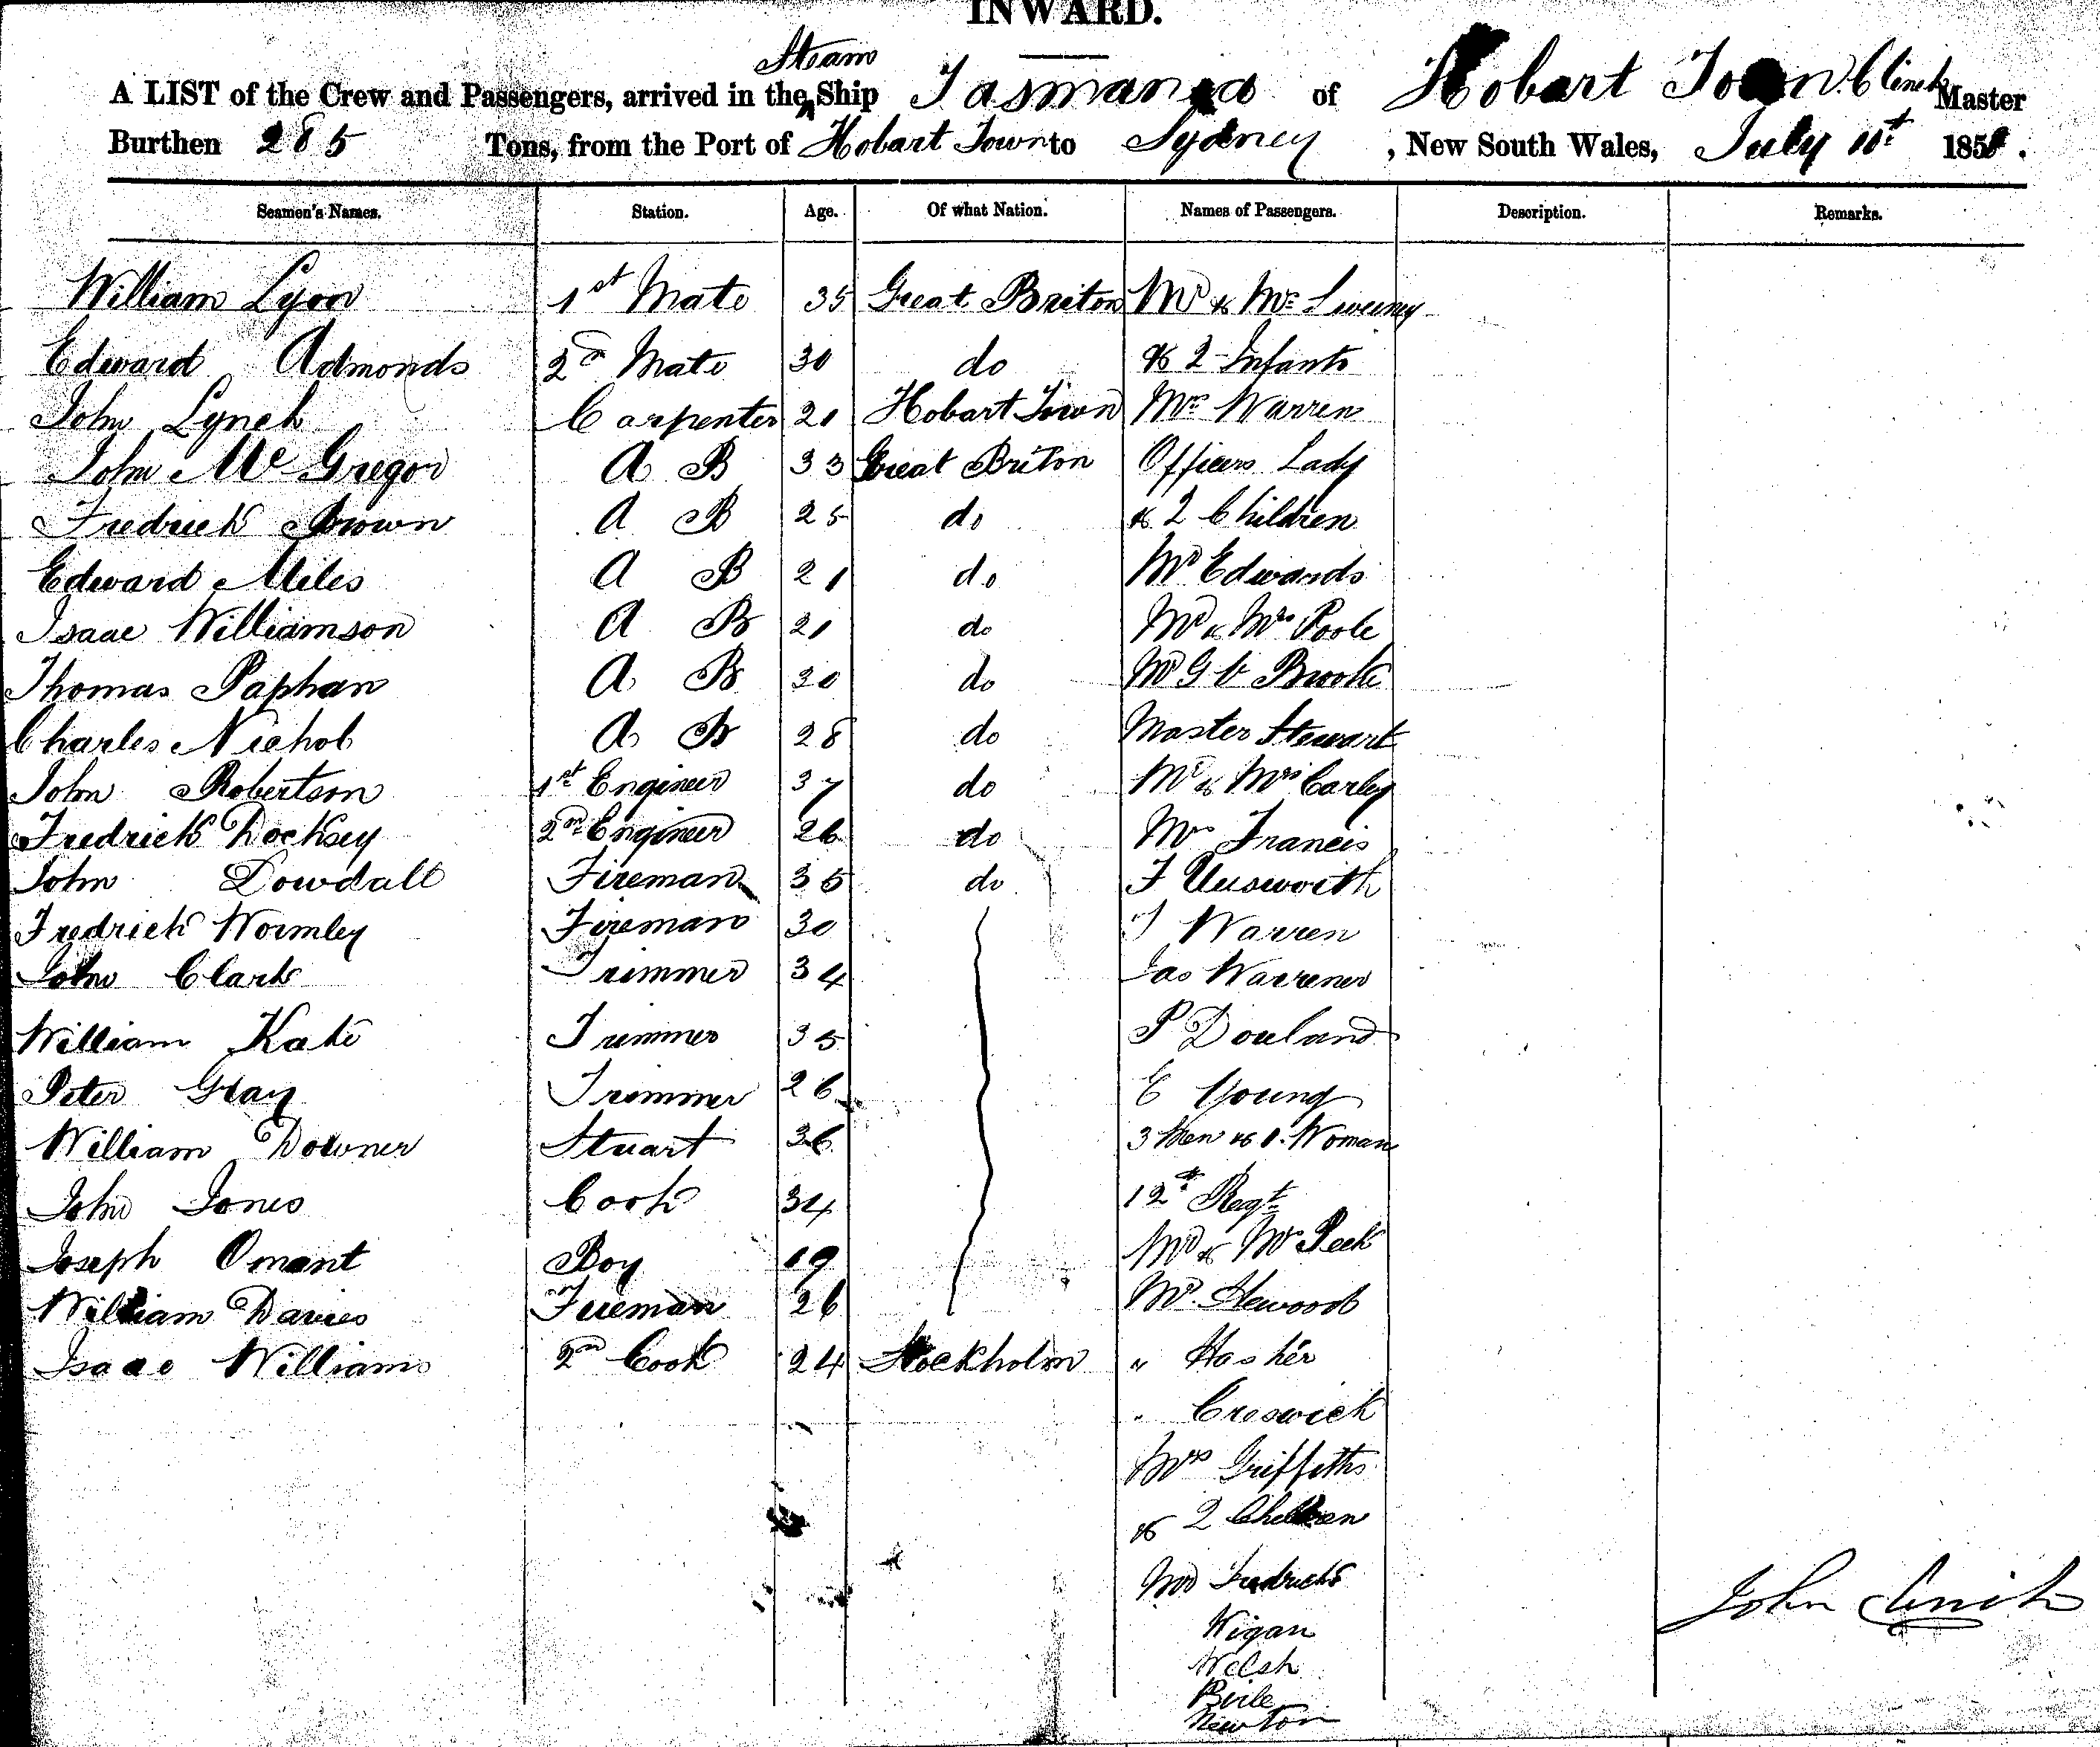 INWARD.
Steam
A LIST of the Crew and Passengers, arrived in the Ship Tasmania of Hobart Town Clinch Master
Burthen 285 Tons, from the Port of Hobart Town to Sydney, New South Wales, July 10t 185 .
Seamen's Names. Station. Age. Of what Nation. Names of Passengers. Description. Remarks.
William Lyon 1st Mate 35 Great Briton Mr & Mrs Sweeny
Edward Admonds 2nd Mate 30 do & 2 Infants
John Lynch Carpenter 21 Hobart Town Mrs Warren
John McGregor A B 33 Great Briton Officers Lady
Fredrick Brown A B 25 do & 2 Children
Edward Miles A B 21 do Mr Edwards
Isaac Williamson A B 21 do Mr & Mrs Poole
Thomas Paphan A B 30 do Mr G V Brooke
Charles Nichol A B 28 do Master Stewart
John Robertson 1st Engineer 37 do Mr & Mrs Carley
Fredrick Docksey 2nd Engineer 26 do Mrs Francis
John Dowdall Fireman 35 do F Unsworth
Fredrick Wormley Fireman 30 Warren
John Clark Trimmer 34 Jas Warrener
William Kate Trimmer 35 P Douland
Peter Gray Trimmer 26 E Young
William Downer Stuart 36 3 Men & 1 Woman
John Jones Cook 34 12t Regt
Joseph Omant Boy 19 Mr & Mrs Peek
William Davies Fireman 26 Mr.
Isaac Williams 2nd Cook 24 Stockholm " Hasker
" Creswick
Mrs Griffiths
& 2 Children
Fredricks
Wigan
Welsh
Newton
John Clinch